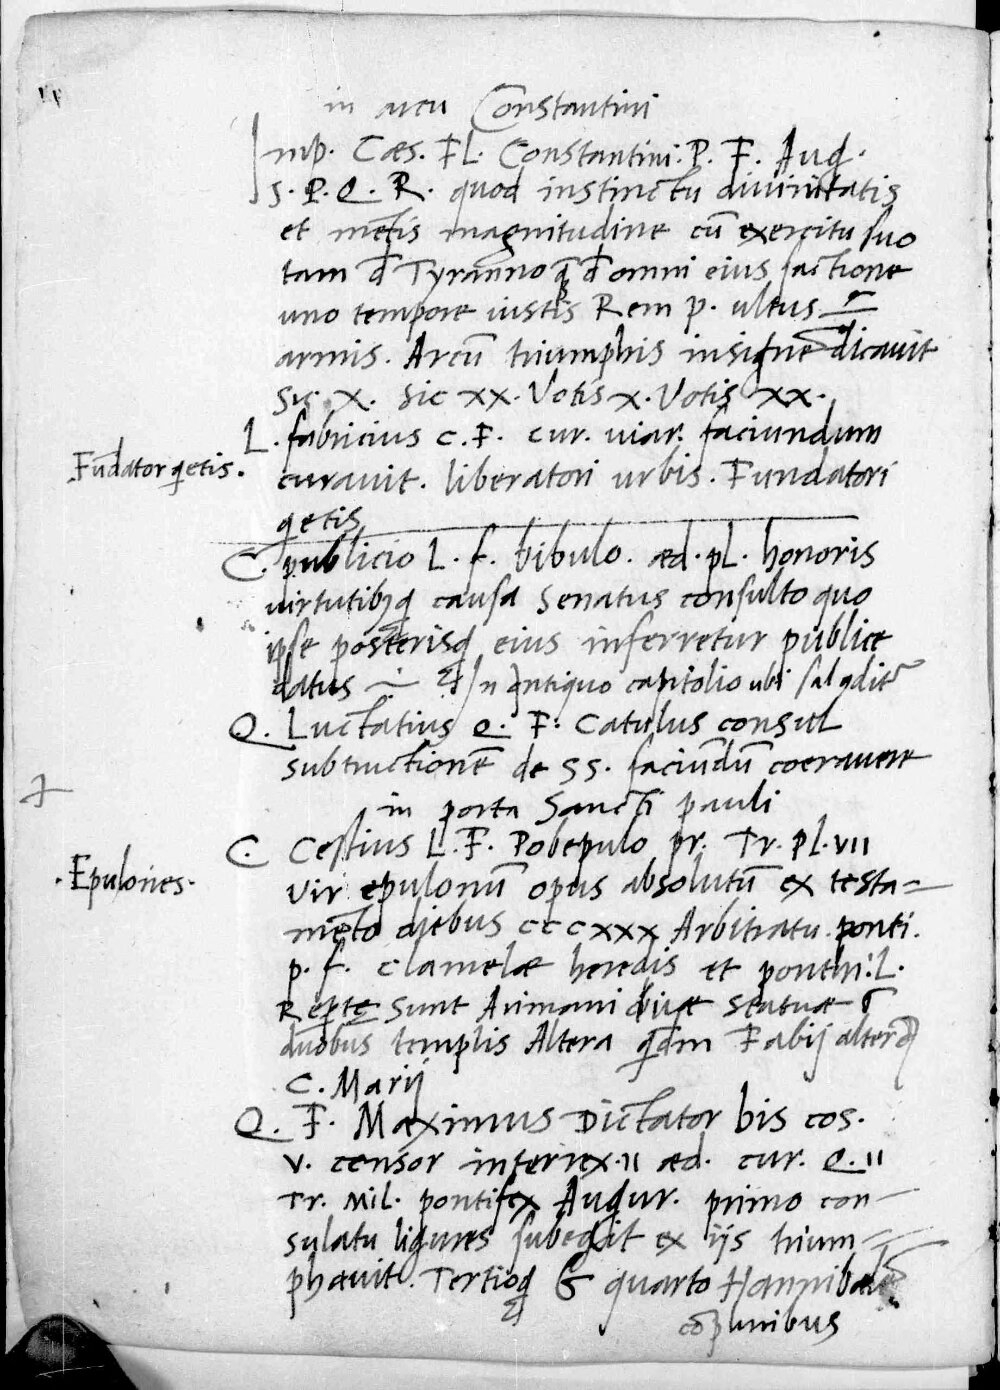 in arcu Constantini
Imp. Cæs. FL. Constantini. P. F. Aug.
S. P. Q. R. quod instinctu divinitatis
et metis magnitudine cū exercitu suo
tam d̄ Tyranno q̄ d̄ omni eius factione
uno tempore iustis Rem p. ultus
armis. Arcū triumphis insigne dicavit
Sic. X. Sic XX. Votis X. Votis XX.
L. fabricius C. F. cur. viar. faciundum
Fūdator qetis.
curavit. liberatori urbis. Fundatori
qetis
C. publicio L. f. bibulo. æd. pL. honoris
virtutibȝq causa Senatus consulto quo
ipse posterisq eius inferretur publice
datus ÷ In antiquo capitolio ubi sal
Q. Luctatius Q. F. Catulus consul
subtructionē de SS. faciūdū coeravere
in porta Sancti pauli
C. Cestius L. F. Pobepulo pr. Tr. pL. VII
Epulones.
vir epulonū opus absolutū ex testa=
mēto diebus CCCXXX Arbitratu. ponti.
p. f. clamelæ heredis et ponthi: L.
Repte sunt Animani duæ statuæ
duobus templis Altera qdm Fabij alteraq
C. Marij
Q. F. Maximus Dictator bis cos.
V. censor interrex. II æd. cur. Q. II
Tr. Mil. pontifex Augur. primo con-
sulatu ligures subegit ex iis trium=
phavit. Tertioq & quarto Hannibalē